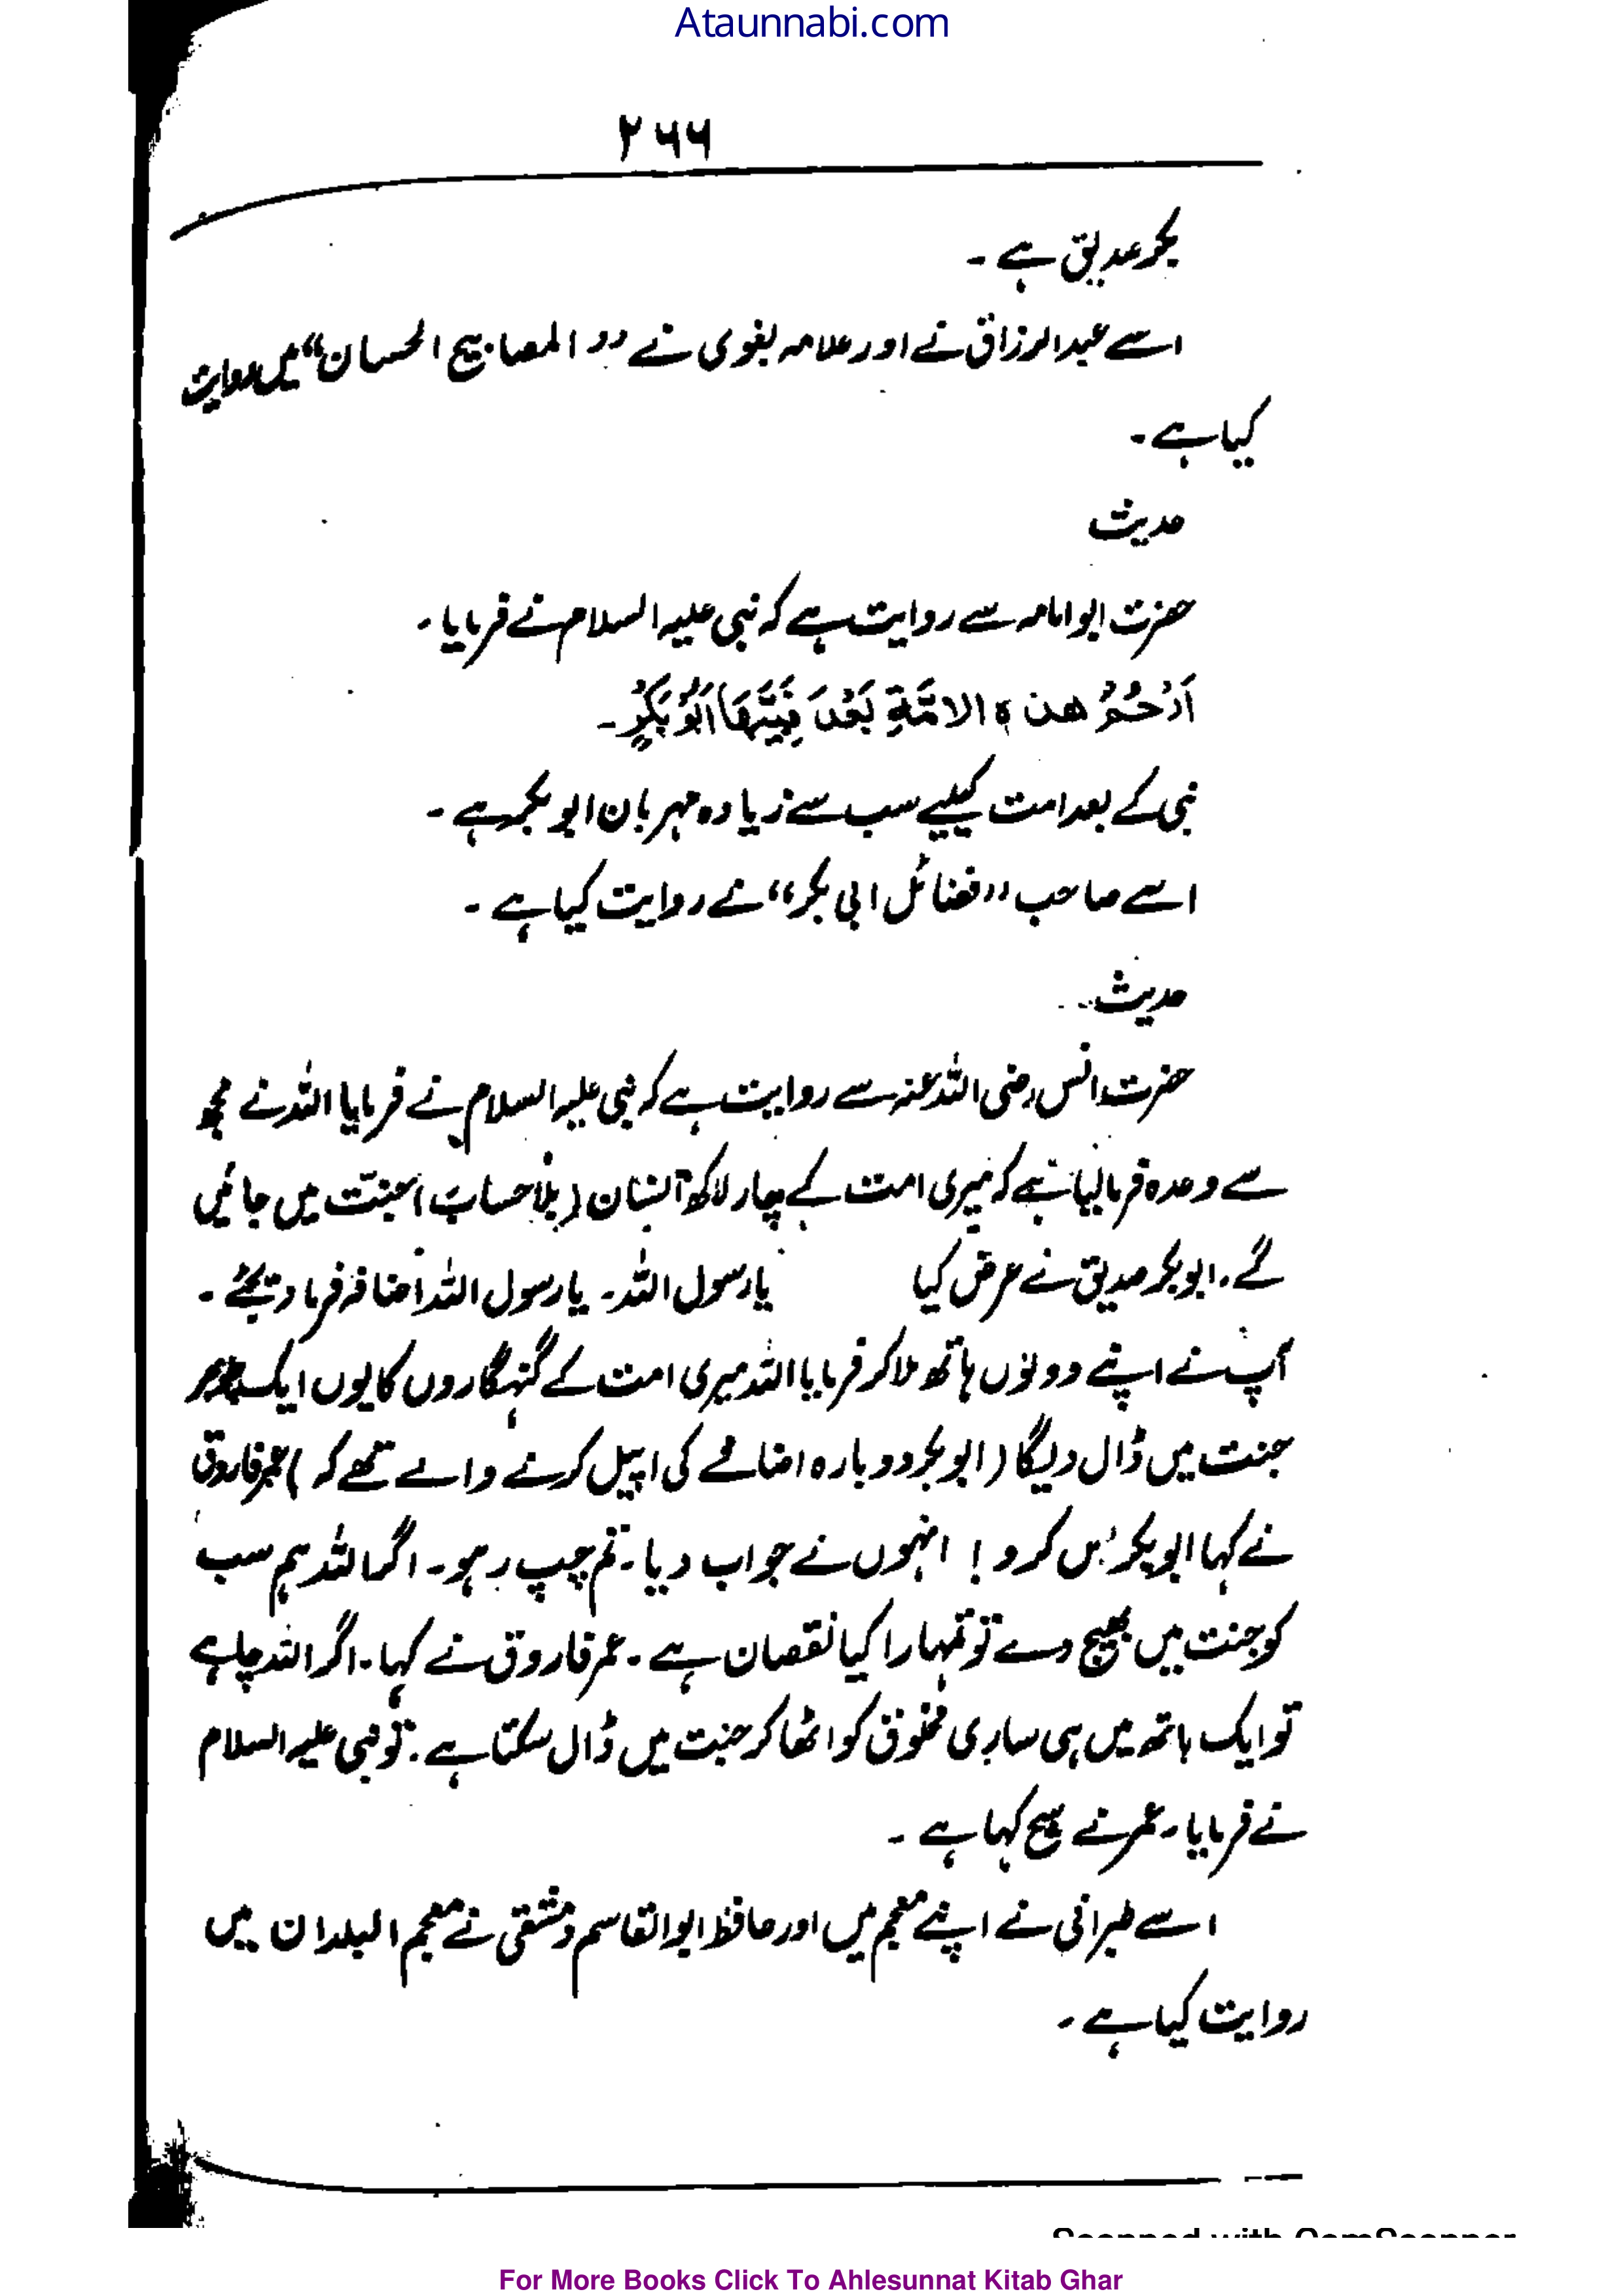 Ataunnabi.com
۲۶۶
بکر صدیق ہے ۔
اسے عبدالرزاق نے اور علامہ بغوی نے ’’المصابیح الحسان‘‘ میں روایت
کیا ہے۔
حدیث
حضرت ابو امامہ سے روایت ہے کہ نبی علیہ السلام نے فرمایا ۔
اَرْحَمُ هٰذِهِ الامَّةِ بَعْدَ نَبِیِّهَا اَبُوْ بَکْرٍ ۔
نبی کے بعد امت کیلیے سب سے زیادہ مہربان ابوبکر ہے ۔
اسے صاحب ’’فضائل ابی بکر‘‘ نے روایت کیا ہے ۔
حدیث
حضرت انس رضی اللہ عنہ سے روایت ہے کہ نبی علیہ السلام نے فرمایا اللہ نے مجھ
سے وعدہ فرمالیا ہے کہ میری امت کے چار لاکھ انسان (بلا حساب) جنت میں جائیں
گے۔ ابوبکر صدیق نے عرض کیا یا رسول اللہ۔ یا رسول اللہ اضافہ فرما دیجئے ۔
آپ نے اپنے دونوں ہاتھ ملا کر فرمایا اللہ میری امت کے گنہگاروں کا یوں ایک
جنت میں ڈال دیگا (ابوبکر دوبارہ اضافے کی اپیل کرنے والے تھے کہ) عمر فاروق
نے کہا ابوبکر بس کرو! انہوں نے جواب دیا۔ تم چپ رہو۔ اگر اللہ ہم سب
کو جنت میں بھیج دے تو تمہارا کیا نقصان ہے۔ عمر فاروق نے کہا۔ اگر اللہ چاہے
تو ایک ہاتھ میں ہی ساری مخلوق کو اٹھا کر جنت میں ڈال سکتا ہے۔ تو نبی علیہ السلام
نے فرمایا۔ عمر نے سچ کہا ہے ۔
اسے طبرانی نے اپنے معجم میں اور حافظ ابوالقاسم دمشقی نے معجم البلدان میں
روایت کیا ہے ۔
Scanned with CamScanner
For More Books Click To Ahlesunnat Kitab Ghar